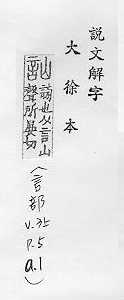 說文解字
大徐本
訕
謗也从言山
聲所晏切
(言部
V.3上
P.5
a.1)